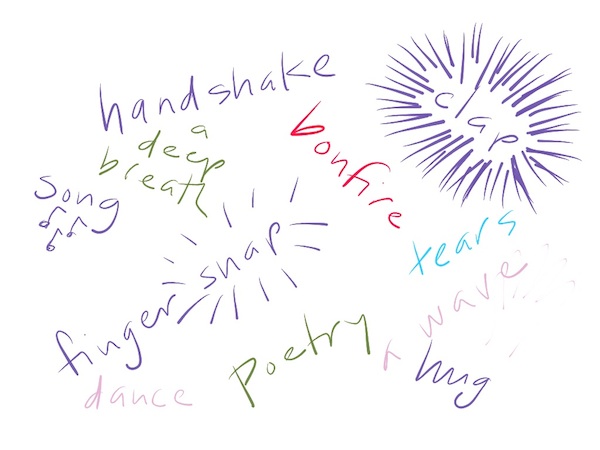 handshake
clap
a
deep
breath
bonfire
song
finger snap
tears
a wave
poetry
hug
dance